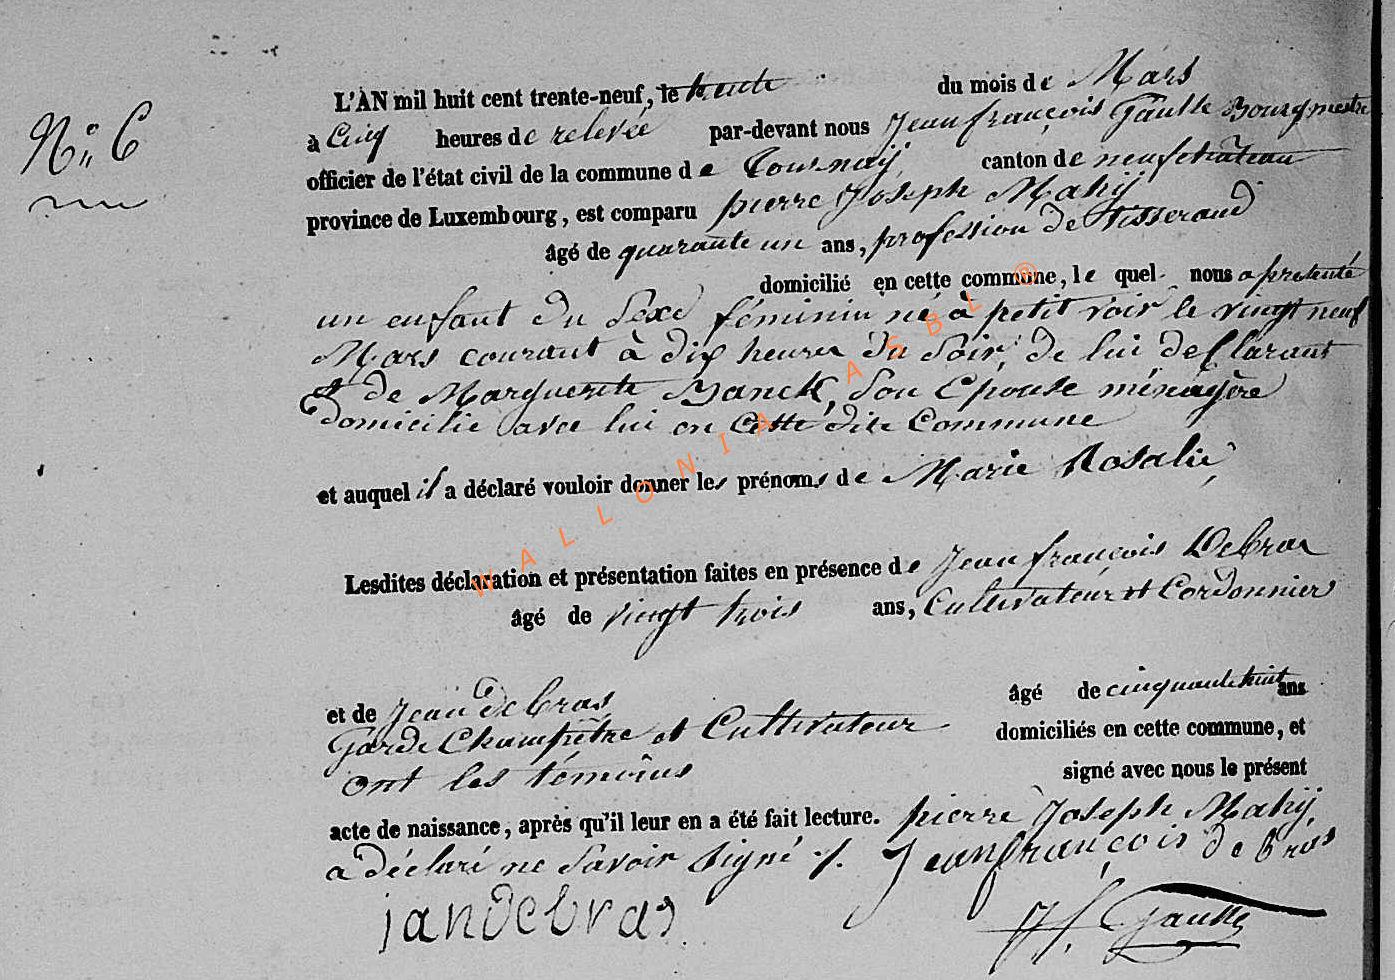 N° 6
L'AN mil huit cent trente-neuf, le trente du mois de Mars
à Cinq heures de relevée par-devant nous Jean françois Gaulle Bourgmestre
officier de l'état civil de la commune de Tournaÿ canton de neufchâteau
province de Luxembourg, est comparu pierre Joseph Mahÿ
âgé de quarante un ans, profession de Tisserand
domicilié en cette commune, le quel nous a présenté
un enfant du Sexe féminin né à petit voir le vingt neuf
Mars courant à dix heures du Soir, de lui déclarant
et de Marguerite Banck, Son Epouse ménagère
domicilié avec lui en Cette dite Commune
et auquel il a déclaré vouloir donner les prénoms de Marie Rosalie,
Lesdites déclaration et présentation faites en présence de Jean françois Debras
âgé de vingt trois ans, Cultivateur et Cordonnier
et de Jean debras âgé de cinquante huit ans
Garde Champêtre et Cultivateur domiciliés en cette commune, et
ont les témoins signé avec nous le présent
acte de naissance, après qu'il leur en a été fait lecture. pierre Joseph Mahÿ
a déclaré ne Savoir Signé ./. Jeanfrançois de bras
jandebras
Jf. Gaulle
WALLONIA ASBL ®